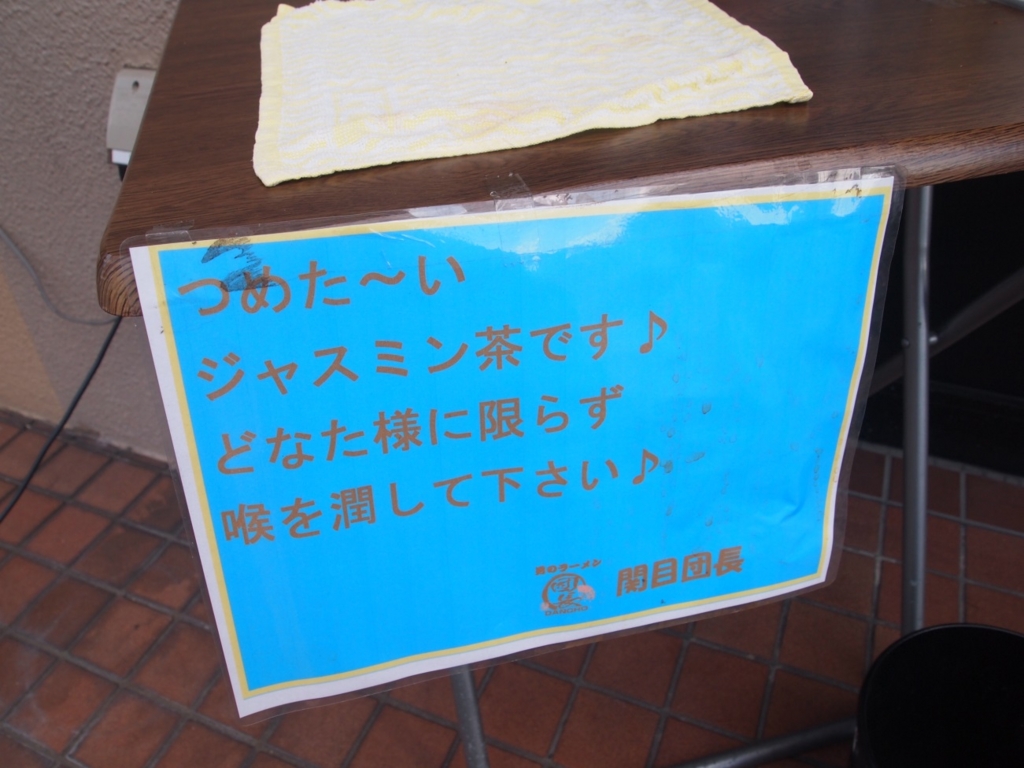 つめた～い
ジャスミン茶です♪
どなた様に限らず
喉を潤して下さい♪
関目団長